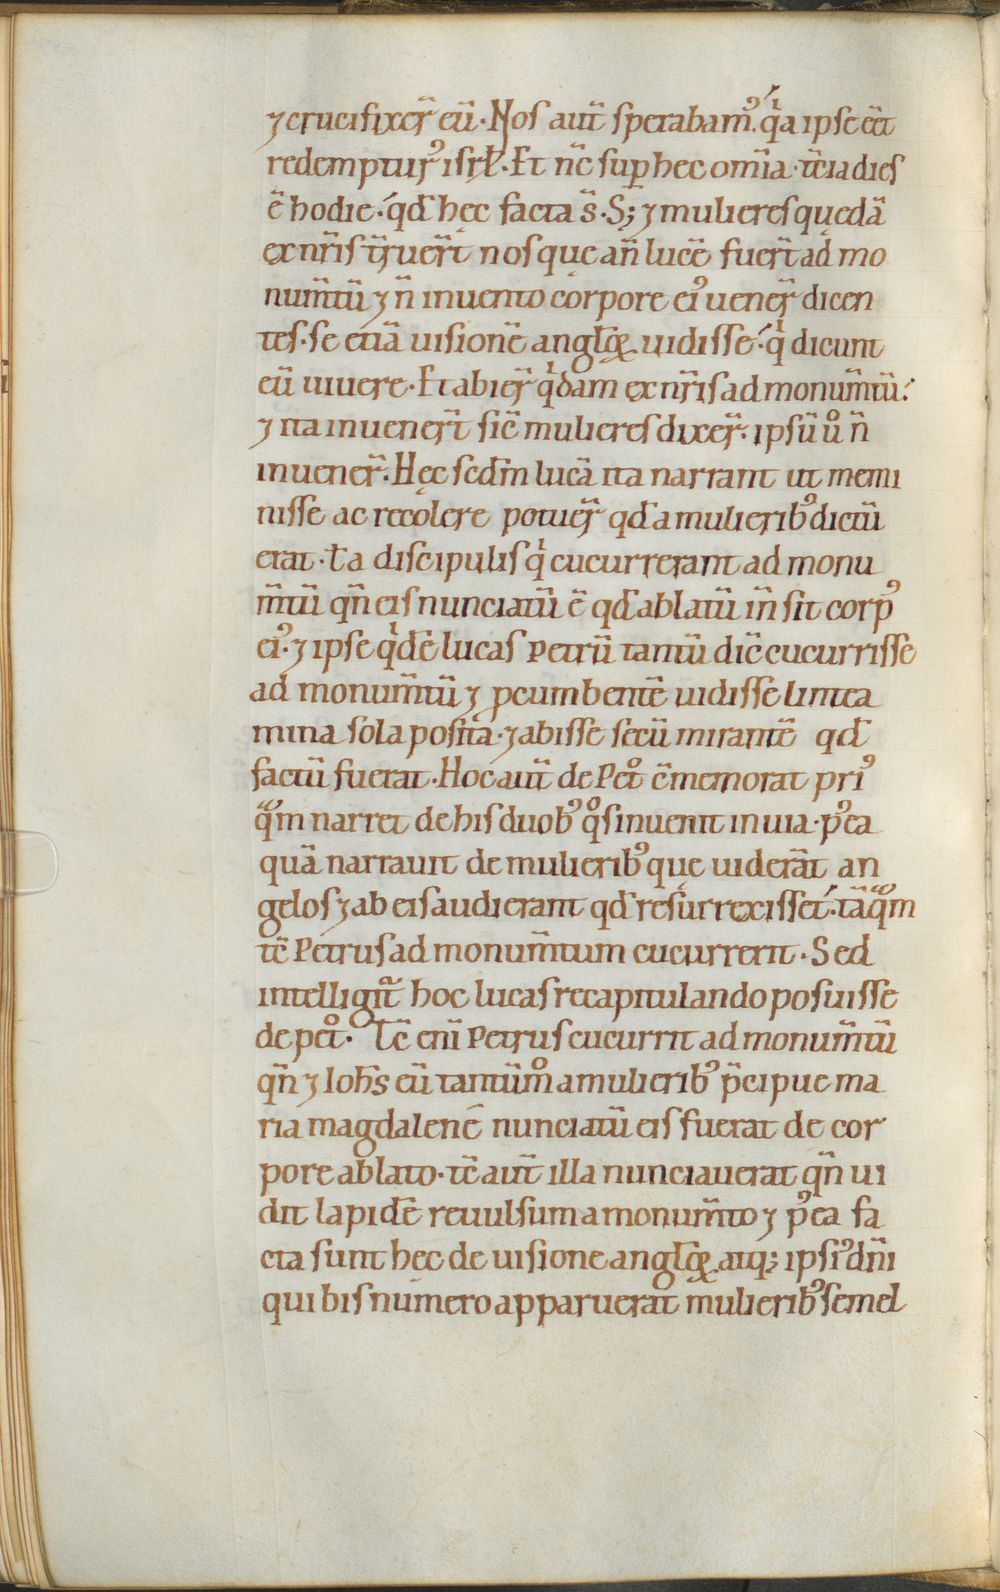 ⁊ crucifixer̄ eū. Nos aut̄ sperabamꝰ. qͥa ipse eēt
redempturꝰ isrł. Et nc̄ sup hec om̄ia. tc̄ia dies
ē hodie. qd̄ hęc facta s̄. S; ⁊ mulieres quędā
ex nr̄is t̄rruer̄t nos quę an̄ lucē fuer̄t ad mo
num̄tū ⁊ n̄ inuento corpore eiꝰ uener̄ dicen
tes. se etiā uisionē angłoꝝ uidisse. qͥ dicunt
eū uiuere. Et abier̄ qͥdam ex nr̄is ad monum̄tū.
⁊ ita inuener̄t sic̄ mulieres dixer̄. ipsū uͦ n̄
inuener̄. Hęc scd̄m lucā ita narrant ut memi
nisse ac recolere potuer̄ qd̄ a mulieribꝰ dictū
erat. t̄a discipulis qͥ cucurrerant ad monu
m̄tū qn̄ eis nunciatū ē qd̄ ablatū in̄ sit corpꝰ
eiꝰ. ⁊ ipse qͥdē lucas petrū tantū dic̄ cucurrisse
ad monum̄tū ⁊ ꝓcumbentē uidisse lintea
mina sola posita. ⁊ abisse secū mirantē qd̄
factū fuerat. Hoc aut̄ de Petͦ c̄memorat priꝰ
qͣm narret de his duobꝰ qͦs inuenit in uia. pꝰea
quā narrauit de mulieribꝰ quę uiderāt an
gelos ⁊ ab eis audierant qd̄ resurrexisset. tāqͣm
tc̄ Petrus ad monum̄tum cucurrerit. Sed
intelligit̄ hoc lucas recapitulando posuisse
de petͦ. Tc̄ eni̅ Petrus cucurrit ad monum̄tū
qn̄ ⁊ Ioh̄s cū tantūmͦ a mulieribꝰ p̄cipue ma
ria magdalenē nunciatū eis fuerat de cor
pore ablato. tc̄ aut̄ illa nunciauerat qn̄ ui
dit lapidē reuulsum a monum̄to ⁊ pꝰea fa
cta sunt hęc de uisione angłoꝝ. atq; ipsiꝰ dn̄i
qui bis numero apparuerat mulieribꝰ semel